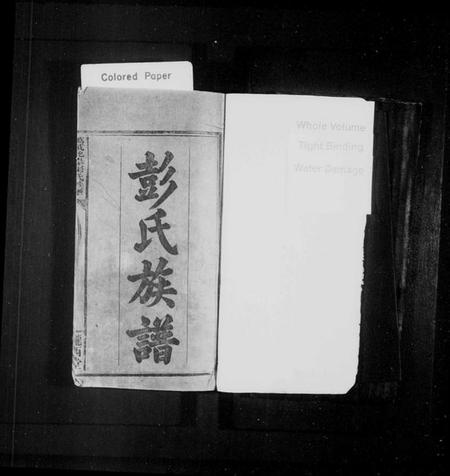 Colored Paper
Whole Volume
Tight Binding
Water Damage
彭氏族譜